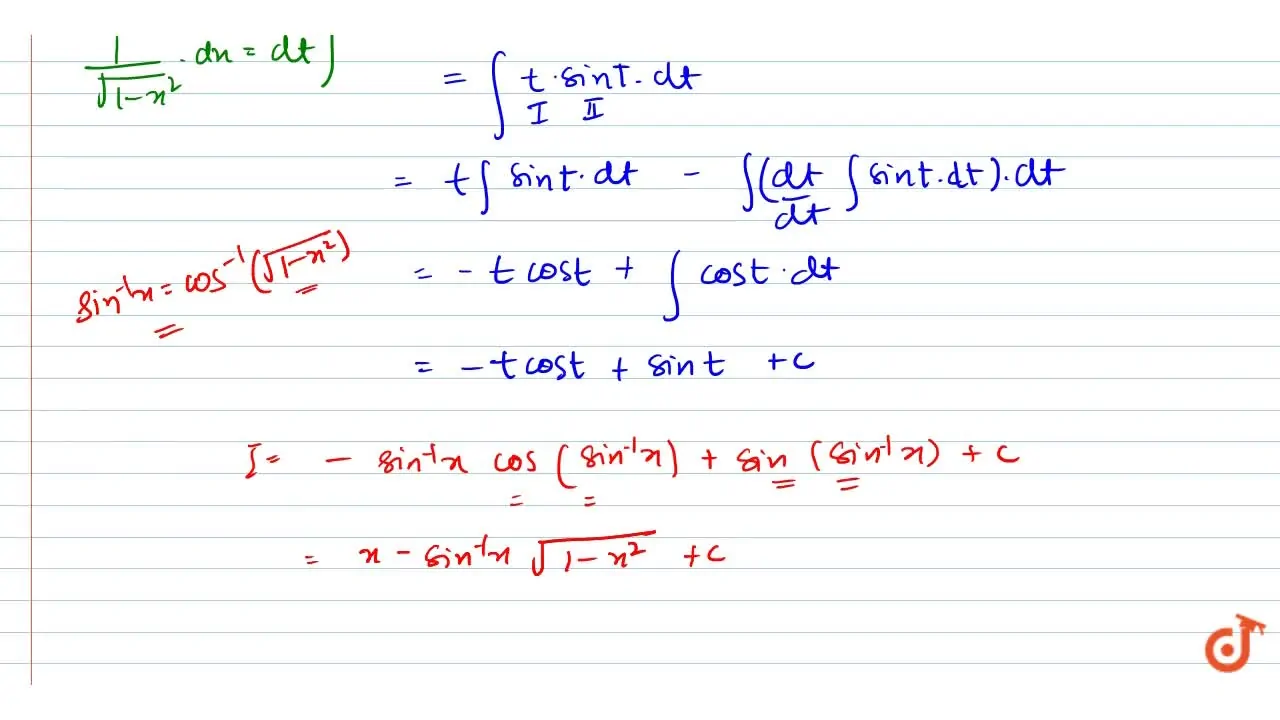 1/√(1-x²) · dx = dt
= ∫ t · sin t · dt
I II
= t ∫ sin t · dt - ∫ (dt/dt ∫ sin t · dt) · dt
sin⁻¹x = cos⁻¹(√(1-x²))
= - t cos t + ∫ cos t · dt
= - t cos t + sin t + c
I = - sin⁻¹x cos (sin⁻¹x) + sin (sin⁻¹x) + c
= x - sin⁻¹x √(1-x²) + c